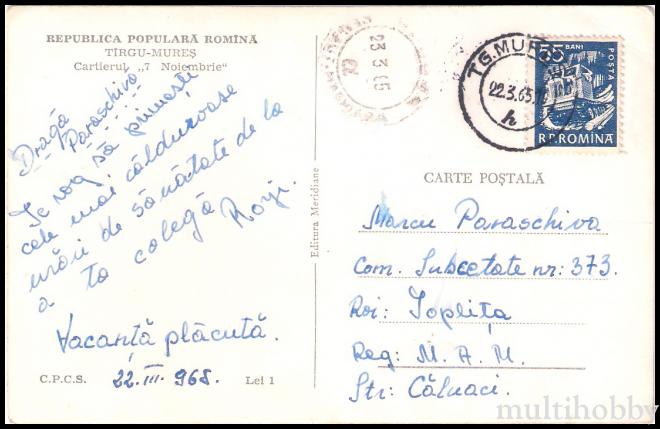 REPUBLICA POPULARĂ ROMÎNĂ
TÎRGU-MUREȘ
Cartierul „7 Noiembrie“
Dragă
Paraschiva
Te rog să primești
cele mai călduroase
urări de sănătate de la
a ta colegă Rozi.
Vacanță plăcută.
C.P.C.S.
22.III.965.
Lei 1
Editura Meridiane
23.3.65
TG. MUREȘ
22.3.65
h
35 BANI
POSTA
R.P.ROMINA
CARTE POȘTALĂ
Marcu Paraschiva
Com. Subcetate nr: 373.
Roi: Toplița
Reg: M. A. M.
Str: Călnaci.
multihobby